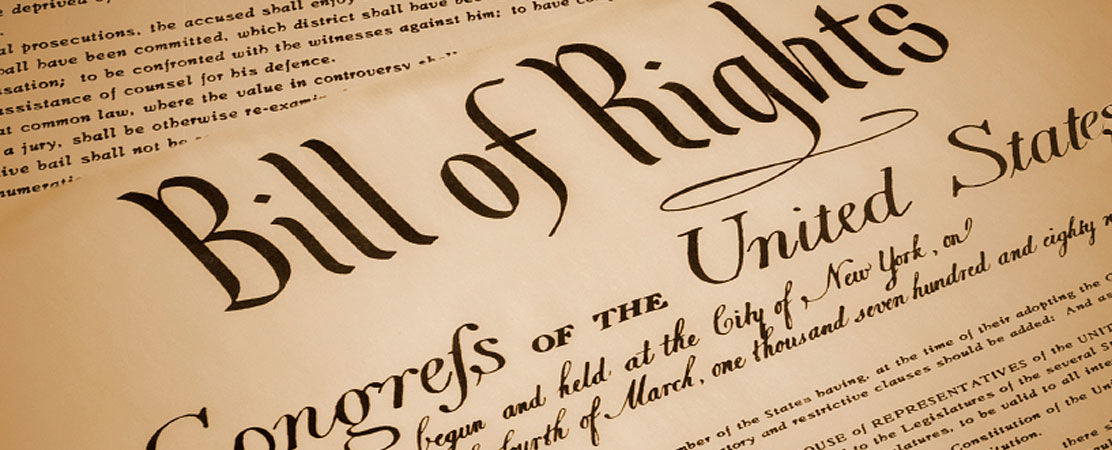 deprived
al prosecutions, the accused shall enjoy
all have been committed, which district shall have be
sation; to be confronted with the witnesses against him; to have
ssistance of counsel for his defence.
at common law, where the value in controversy
a jury, shall be otherwise re-exami
ive bail shall not be
numerati
Bill of Rights
Congreſs OF THE United States
begun and held at the City of New York, on
fourth of March, one thousand seven hundred and eighty
mber of the States having, at the time of their adopting the C
tory and restrictive clauses should be added: And as
OUSE of REPRESENTATIVES of the UNIT
to the Legislatures of the several St
latures, to be valid to all inte
Constitution of the Uni
itution.
there s